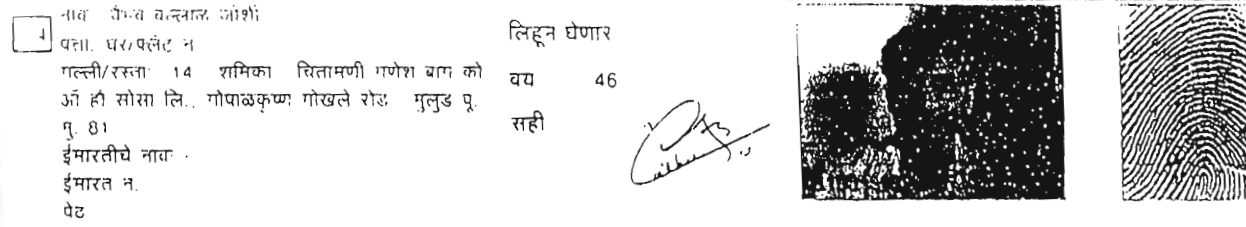 नाव वैभव बल्लाळ जोशी
पत्ता. घर/फ्लॅट न
गल्ली/रस्ताः 14 शमिका चितामणी गणेश बाग को
ऑ हौ सोसा लि., गोपाळकृष्ण गोखले रोड मुलुड पू.
मु. 81
ईमारतीचे नावः -
ईमारत न.
पेठ
लिहून घेणार
वय 46
सही